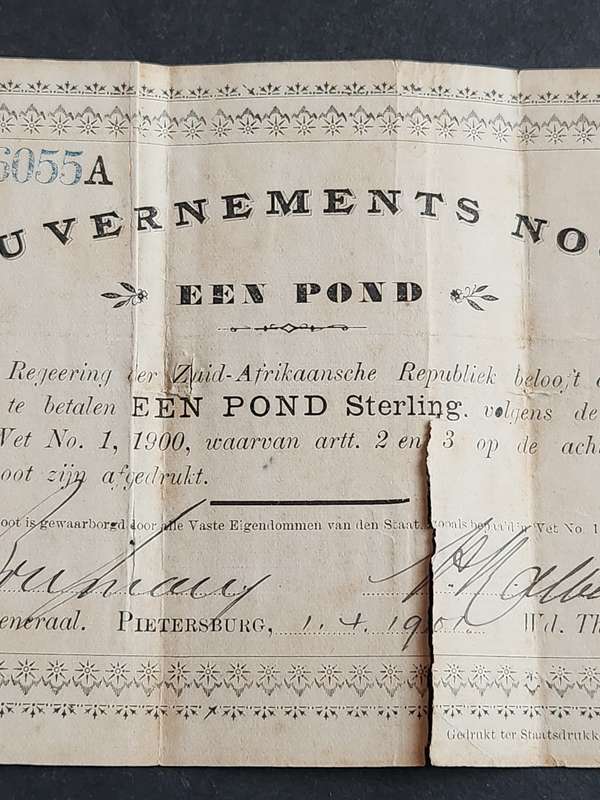 6055A
UVERNEMENTS NO
EEN POND
Regeering der Zuid-Afrikaansche Republiek belooft
te betalen EEN POND Sterling. volgens de
Wet No. 1, 1900, waarvan artt. 2 en 3 op de ach
oot zijn afgedrukt.
oot is gewaarborgd door alle Vaste Eigendommen van den Staat, zooals bepaald in Wet No. 1
eneraal. PIETERSBURG, 1.4.1901. Wd. Th
Gedrukt ter Staatsdrukk